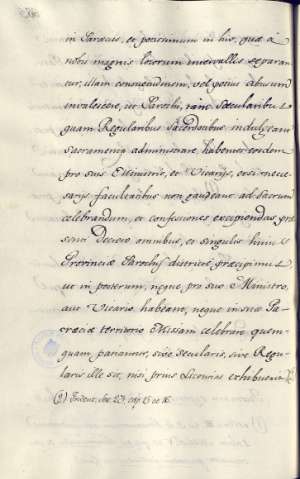 in Paræciis, et potissimum in his, quæ à
nobis magnis locorum intervallis separan
tur, illam consuetudinem, vel potius abusum
invalescere, ut Parochi, tam Sæcularibus
quam Regularibus Sacerdotibus indulgeant
Sacramenta administrare, habeantq eosdem
pro suis Ministris, et Vicariis, etsi neces
sariis facultatibus non gaudeant ad Sacrum
celebrandum, et confessiones excipiendas, præ
senti Decreto omnibus, et singulis huius
Provinciæ Parochis districte præcipimus
ut in posterum, neque pro suo Ministro,
aut Vicario habeant, neque in suæ Pa
ræciæ territorio Missam celebrare quem
quam patiantur, sive Secularis, sive Regu
laris ille sit, nisi prius Licentias exhibuerit
Trident. Ses. 23. cap. 15 et 16.